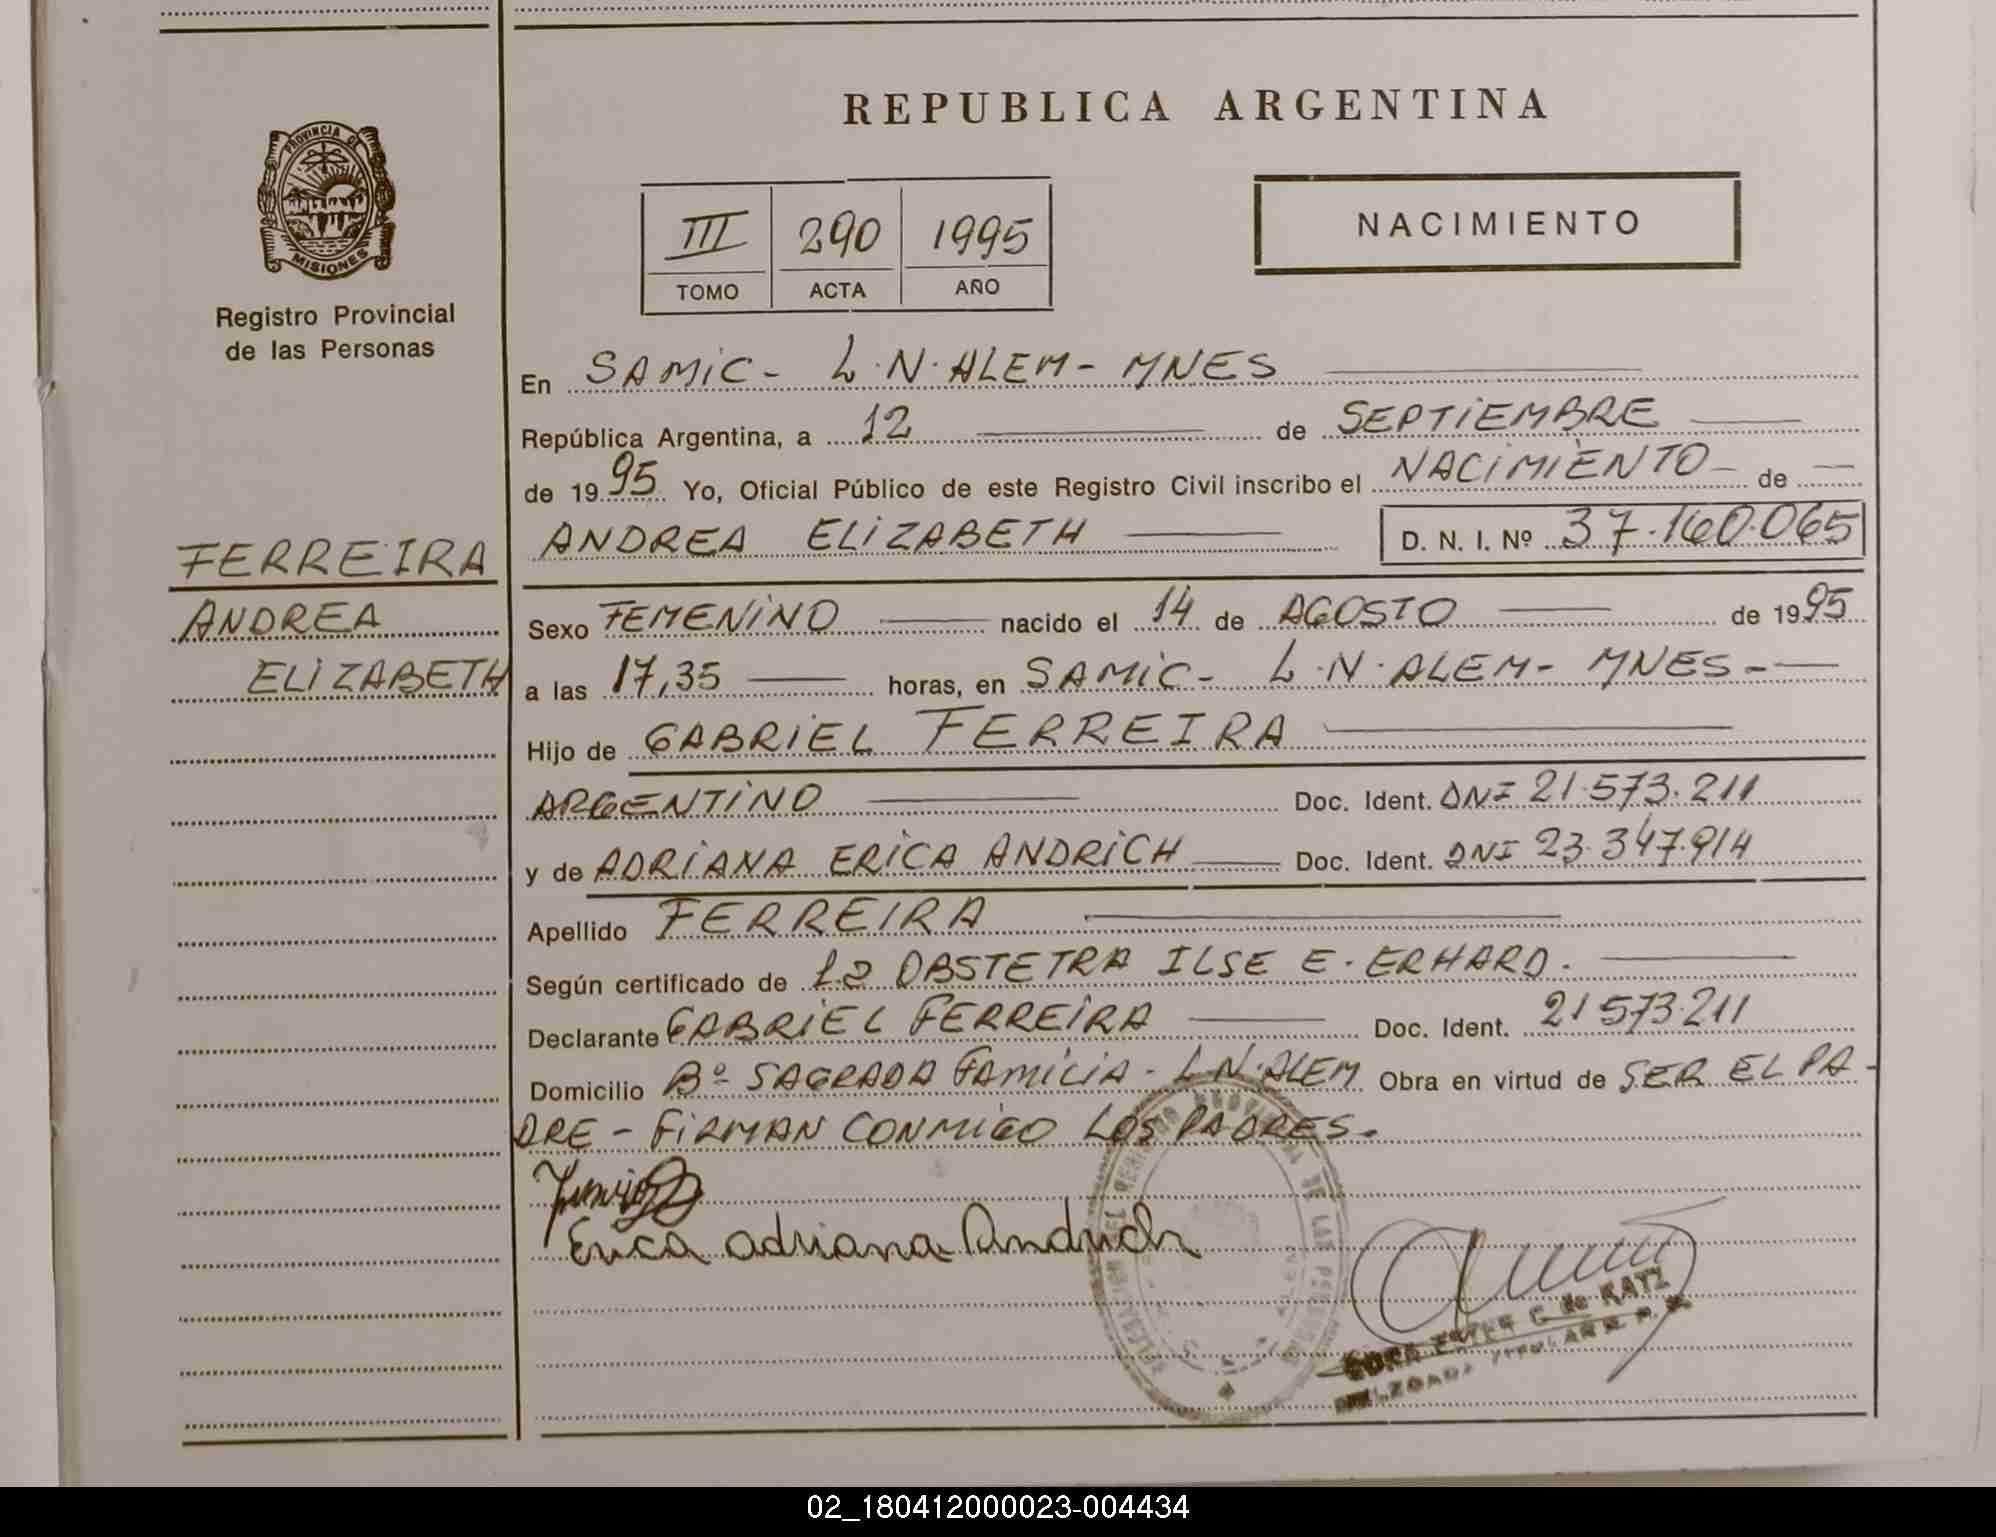 REPUBLICA ARGENTINA
PROVINCIA DE
MISIONES
Registro Provincial
de las Personas
III 290 1995
TOMO ACTA AÑO
NACIMIENTO
En SAMIC - L.N.ALEM - MNES
República Argentina, a 12 de SEPTIEMBRE
de 1995 Yo, Oficial Público de este Registro Civil inscribo el NACIMIENTO - de
ANDREA ELIZABETH D. N. I. Nº 37.160.065
FERREIRA
ANDREA
ELIZABETH
Sexo FEMENINO nacido el 14 de AGOSTO de 1995
a las 17,35 horas, en SAMIC - L.N.ALEM - MNES -
Hijo de GABRIEL FERREIRA
ARGENTINO Doc. Ident. DNI 21.573.211
y de ADRIANA ERICA ANDRICH Doc. Ident. DNI 23.347.914
Apellido FERREIRA
Según certificado de La OBSTETRA ILSE E. ERHARD.
Declarante GABRIEL FERREIRA Doc. Ident. 21573.211
Domicilio Bº SAGRADA FAMILIA - L N.ALEM Obra en virtud de SER EL PA-
DRE - FIRMAN CONMIGO LOS PADRES.
Erica adriana Andrich
DE LAS
ESTER G. de KATZ
TITULAR
02_180412000023-004434